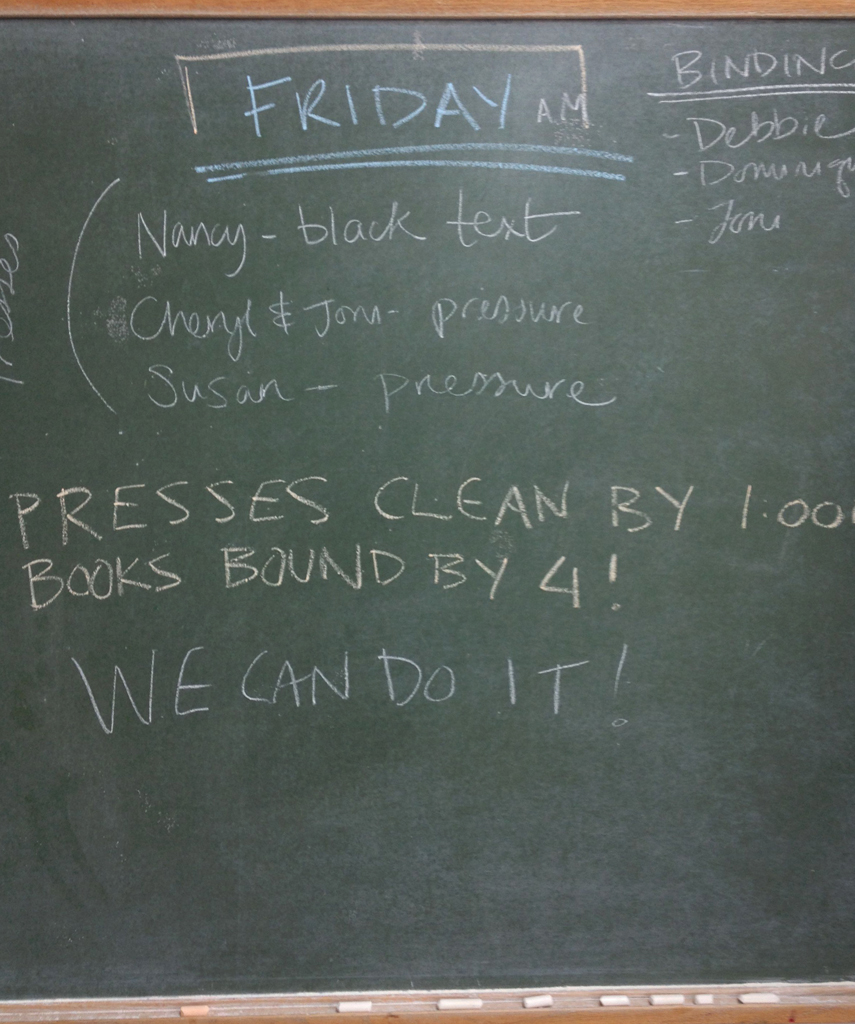 FRIDAY AM
Nancy - black text
Cheryl & Joni - pressure
Susan - pressure
PRESSES CLEAN BY 1:00
BOOKS BOUND BY 4!
WE CAN DO IT!
BINDING
- Debbie
- Dominiq
- Joni